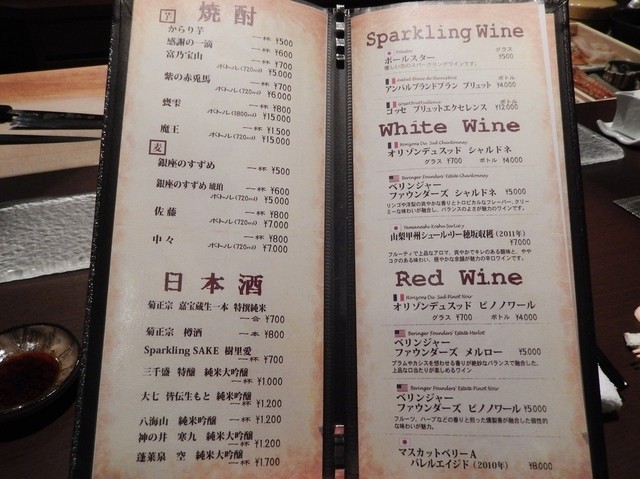 焼酎
芋
からり芋 一杯 ¥500
感謝の一滴 一杯 ¥600
富乃宝山 一杯 ¥700
ボトル(720ml) ¥5,000
紫の赤兎馬 一杯 ¥700
ボトル(720ml) ¥6,000
甕雫 一杯 ¥800
ボトル(1800ml) ¥15,000
魔王 一杯 ¥1,500
ボトル(720ml) ¥15,000
麦
銀座のすずめ 一杯 ¥500
銀座のすずめ 琥珀 一杯 ¥600
ボトル(720ml) ¥5,000
佐藤 一杯 ¥800
ボトル(720ml) ¥7,000
中々 一杯 ¥800
ボトル(720ml) ¥7,000
日本酒
菊正宗 嘉宝蔵生一本 特撰純米
一合 ¥700
菊正宗 樽酒 一本 ¥800
Sparkling SAKE 樹里愛
一杯 ¥700
三千盛 特醸 純米大吟醸
一杯 ¥1,000
大七 皆伝生もと 純米吟醸
一杯 ¥1,200
八海山 純米吟醸 一杯 ¥1,200
神の井 寒九 純米大吟醸
蓬莱泉 空 純米大吟醸
一杯 ¥1,700
Sparkling Wine
ポールスター グラス ¥500
アンパルブランドブラン ブリュット ボトル ¥4,000
ゴッセ ブリュットエクセレンス ボトル ¥12,000
White Wine
Horizons Du Sud Chardonnay
オリゾンデュスッド シャルドネ
グラス ¥700 ボトル ¥4,000
Beringer Founders' Estate Chardonnay
ベリンジャー
ファウンダーズ シャルドネ ¥5,000
リンゴや洋梨の爽やかな香りとトロピカルなフレーバー、クリーミーな味わいが融合し、バランスのよさが魅力のワインです。
山梨甲州シュール・リー穂坂収穫(2011年)
¥7,000
フルーティで上品なアロマ、爽やかでキレのある酸味と、ややコクのある味わい、穏やかな余韻が魅力の辛口ワインです。
Red Wine
Horizons Du Sud Pinot Noir
オリゾンデュスッド ピノノワール
グラス ¥700 ボトル ¥4,000
Beringer Founders' Estate Merlot
ベリンジャー
ファウンダーズ メルロー ¥5,000
プラムやカシスを想わせる香りが絶妙なバランスで融合した、上品な口当たりが楽しめるワイン
Beringer Founders' Estate Pinot Noir
ベリンジャー
ファウンダーズ ピノノワール ¥5,000
フルーツ、ハーブなどの香りと煎った燻製香が融合した個性的な味わいが魅力。
マスカットベリーA
バレルエイジド(2010年) ¥8,000